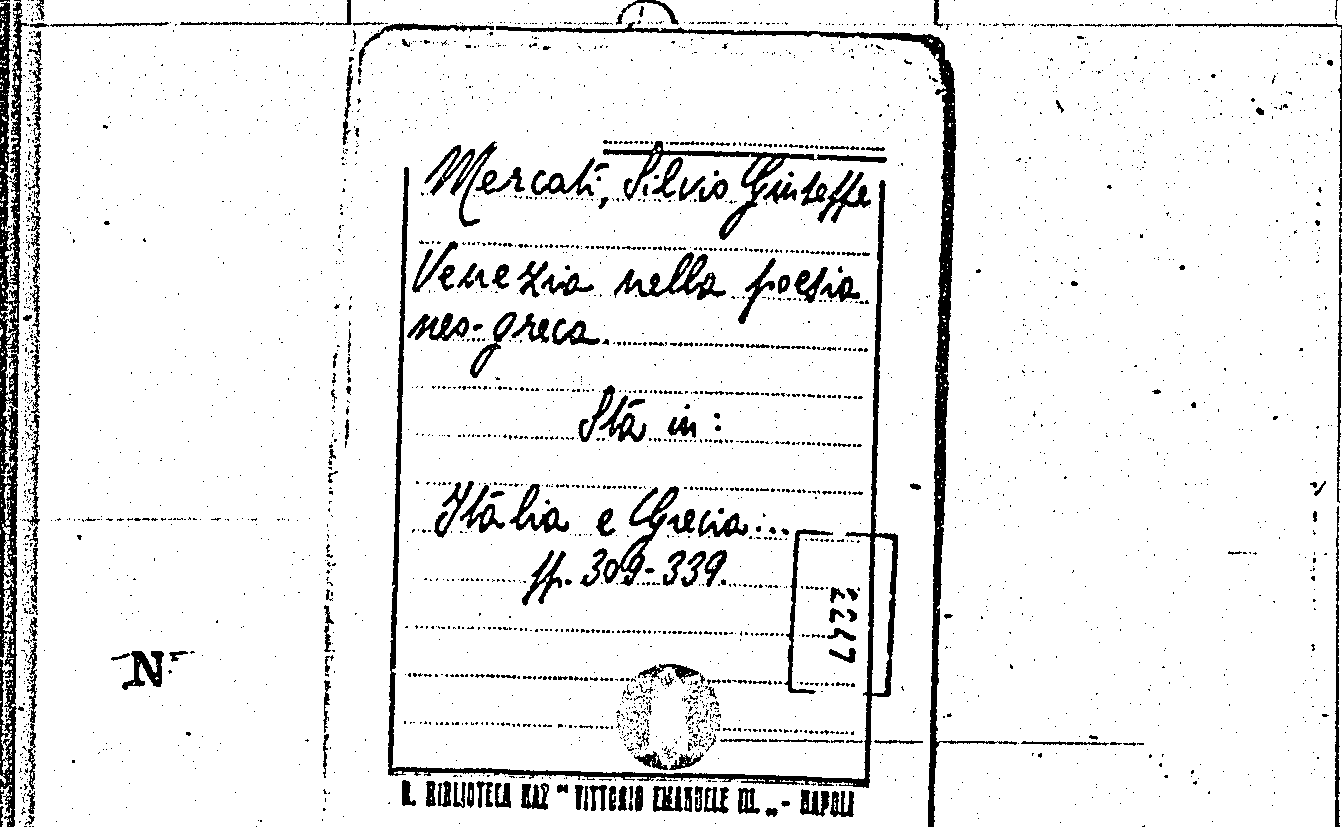 Mercati, Silvio Giuseppe
Venezia nella poesia
neo-greca.
Stà in:
Itàlia e Grecia...
pp. 309-339.
N
R. BIBLIOTECA NAZ " VITTORIO EMANUELE III. „ - NAPOLI